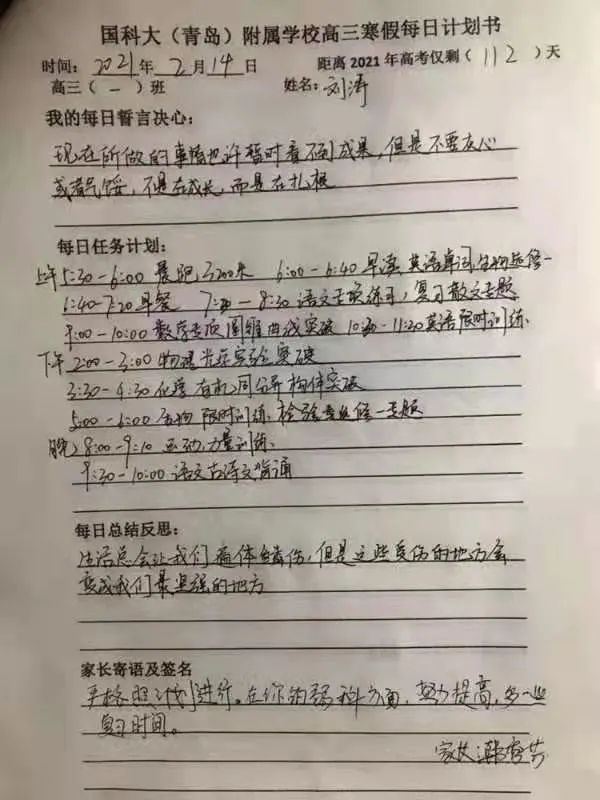 国科大（青岛）附属学校高三寒假每日计划书
时间：2021年2月14日 距离2021年高考仅剩（112）天
高三（一）班 姓名：刘涛
我的每日誓言决心：
现在所做的事情也许暂时看不到成果，但是不要灰心
或者气馁，不是在成长，而是在扎根
每日任务计划：
上午5:30-6:00 晨跑3200米 6:00-6:40 早读 英语单词，生物选修一
6:40-7:20早餐 7:30-8:30语文专项练习，复习散文专题
9:00-10:00 数学专项 圆锥曲线突破 10:30-11:30英语限时训练
下午 2:00-3:00 物理光学实验突破
3:30-4:30 化学 有机同分异构体突破
5:00-6:00 生物 限时训练，检验选修一专题
晚上8:00-9:10 运动力量训练
9:30-10:00 语文古诗文背诵
每日总结反思：
生活总会让我们遍体鳞伤，但是这些受伤的地方会
变成我们最坚强的地方
家长寄语及签名
严格照计划进行。在你的弱科方面，努力提高，多一些
复习时间。
家长：韩